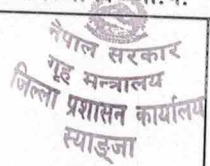 नेपाल सरकार
गृह मन्त्रालय
जिल्ला प्रशासन कार्यालय
स्याङ्जा